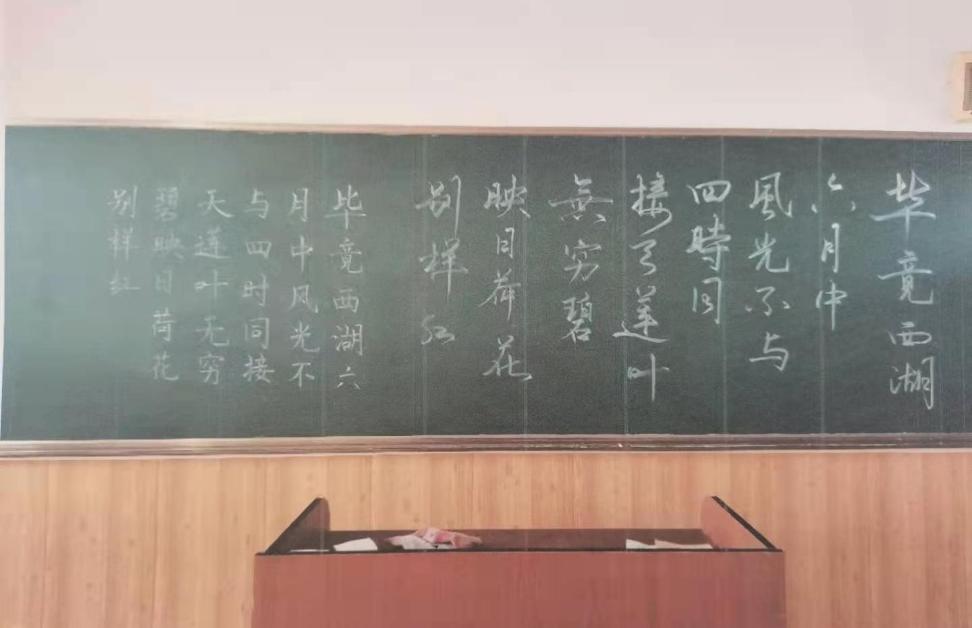 毕竟西湖
六月中
風光不与
四時同
接天莲叶
無穷碧
映日荷花
别样红
毕竟西湖六
月中风光不
与四时同接
天莲叶无穷
碧映日荷花
别样红